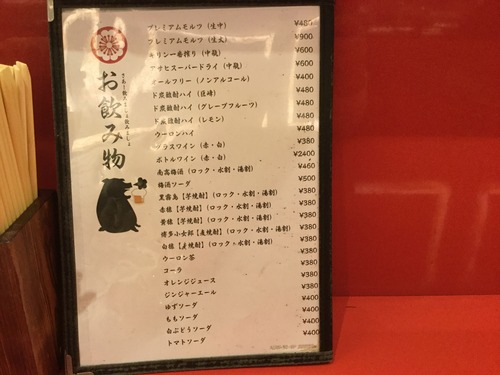 お飲み物
プレミアムモルツ（生中） ¥480
プレミアムモルツ（生大） ¥900
キリン一番搾り（中瓶） ¥600
アサヒスーパードライ（中瓶） ¥600
オールフリー（ノンアルコール） ¥400
ド炭酸酎ハイ（巨峰） ¥480
ド炭酸酎ハイ（グレープフルーツ） ¥480
ド炭酸酎ハイ（レモン） ¥480
ウーロンハイ ¥480
グラスワイン（赤・白） ¥380
ボトルワイン（赤・白） ¥2400
南高梅酒（ロック・水割・湯割） ¥460
梅酒ソーダ ¥500
黒霧島【芋焼酎】（ロック・水割・湯割） ¥380
赤猿【芋焼酎】（ロック・水割・湯割） ¥380
黄猿【芋焼酎】（ロック・水割・湯割） ¥380
博多小女郎【麦焼酎】（ロック・水割・湯割） ¥380
白猿【麦焼酎】（ロック・水割・湯割） ¥380
ウーロン茶 ¥380
コーラ ¥380
オレンジジュース ¥380
ジンジャーエール ¥380
ゆずソーダ ¥400
ももソーダ ¥400
白ぶどうソーダ ¥400
トマトソーダ ¥400